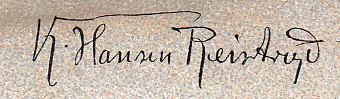 K. Hansen Reistrup